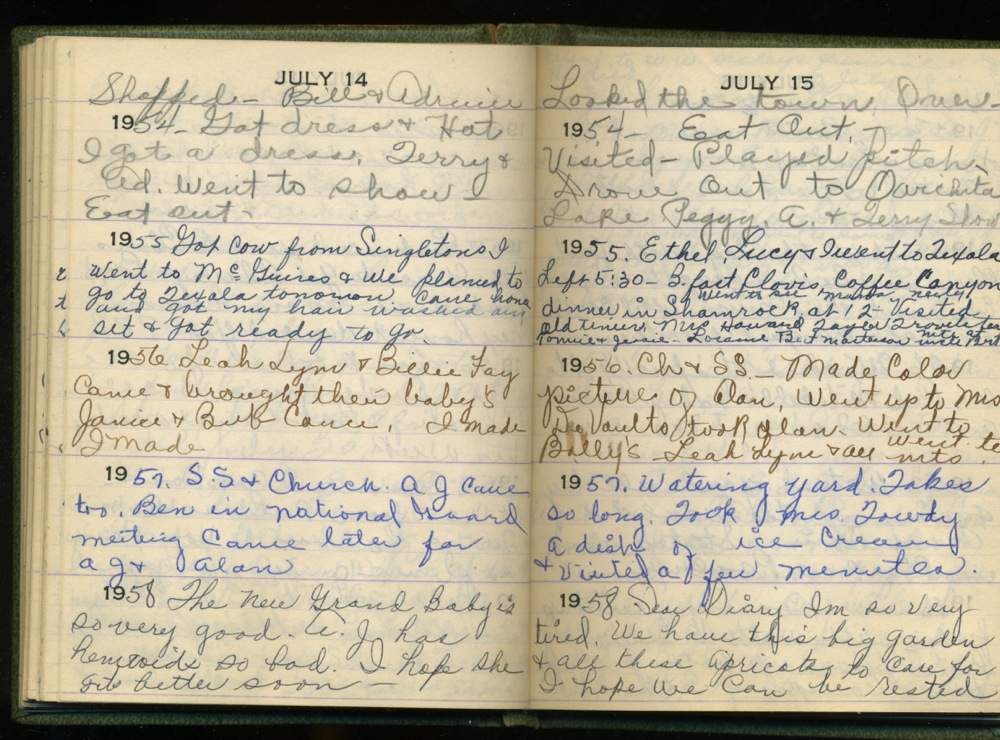 JULY 14
Shopped - Bill &
1954 - Got dress & Hat
I got a dress. Terry &
Ed. Went to show -
Eat out -
1955 Got cow from Singletons I
went to McGuires & we planned to
go to Texola tomorrow. Came home
and got my hair washed and
set & got ready to go.
1956 Leah Lynn & Billie Fay
Came & brought their baby's
Janice & Bub Came. I made
I made
1957. S.S & Church. A J came
too. Ben in national Guard
meeting Came later for
a J & Alan
1958 The new Grand Baby is
so very good. A. J has
hemroids so bad. I hope she
gets better soon -
JULY 15
Looked the town Over -
1954 - Eat Out. -
Visited - Played pitch.
Drove Out to
Lake Peggy, A. & Terry
1955. Ethel, Lucy & I went to Texola
Left 5:30 - B.fast Clovis, Coffee Canyon
went to see
dinner in Shamrock at 12 - Visited
old timers, Mrs Howard
1956. Ch & SS - Made Color
picture of Alan, Went up to Mrs
De Vaults took Alan. Went to
went to
Bally's - Leah Lynn & all
1957. Watering yard. Takes
so long. Took Mrs. Towdy
a dish of ice Cream
& Visited a few minutes.
1958. Dear Diary Im so very
tired. We have this big garden
& all these apricots to care for
I hope we can be rested